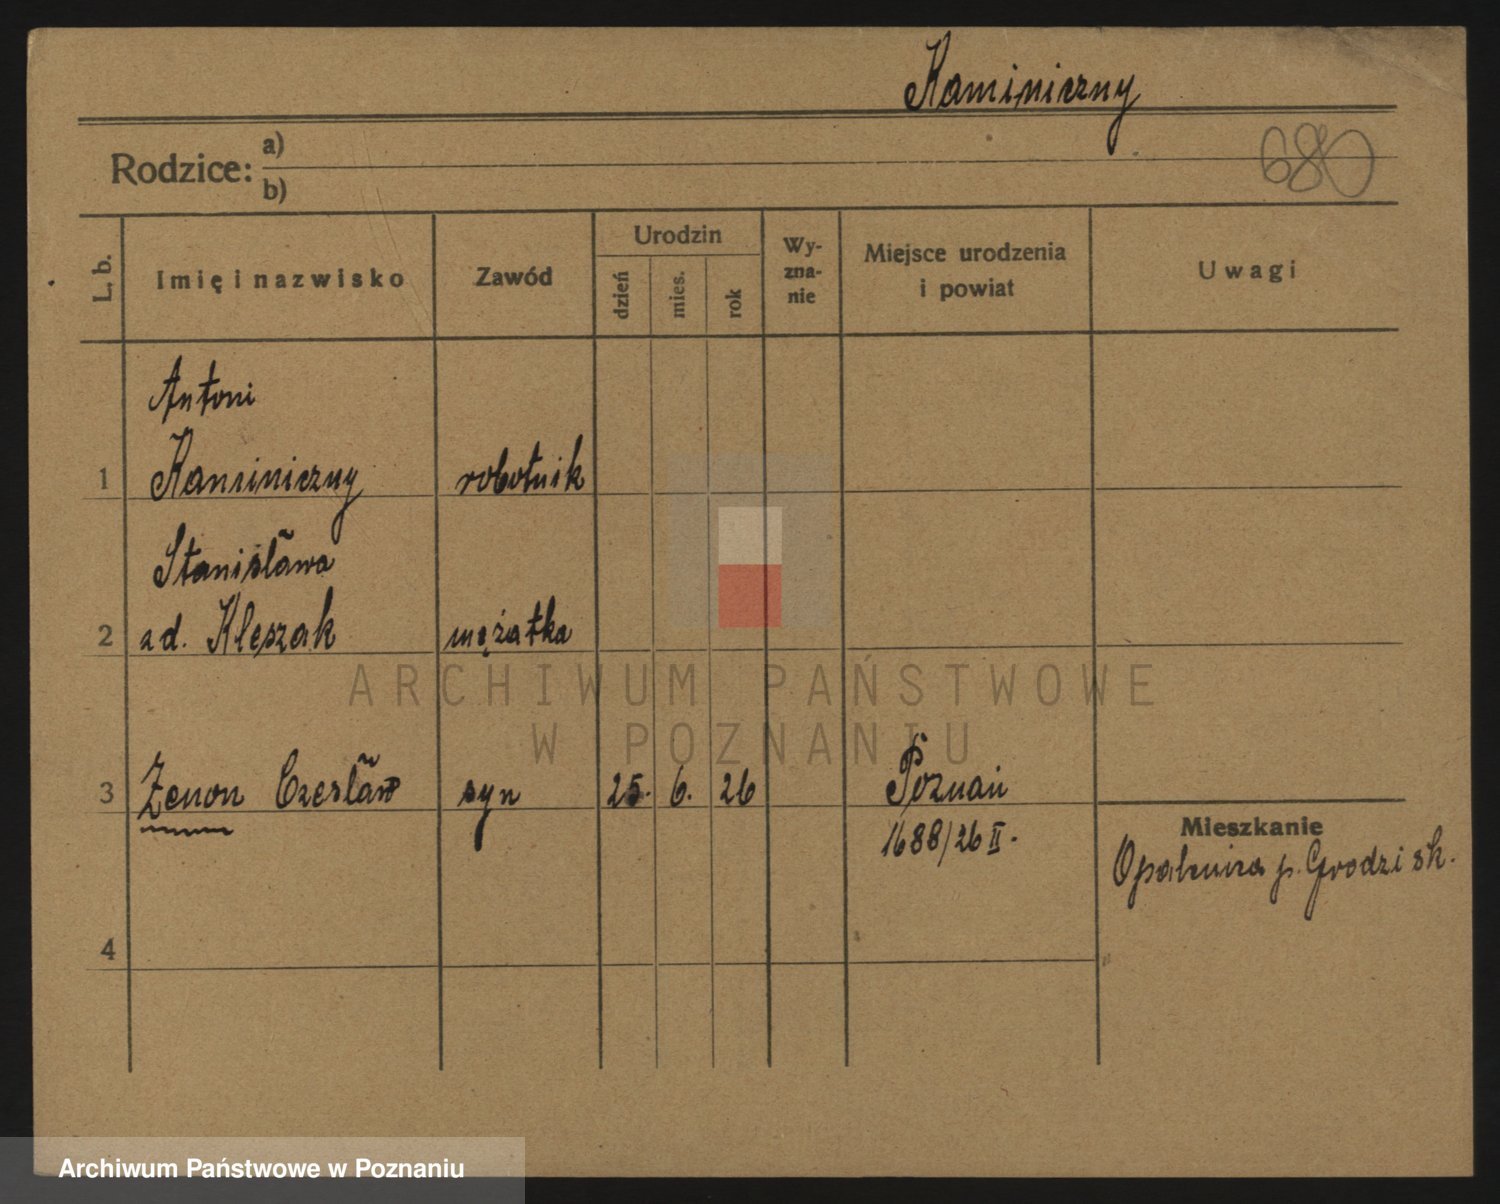 Kaminiczny
Rodzice: a)
b)
680
L. b.
Imię i nazwisko
Zawód
Urodzin
dzień
mies.
rok
Wy-
zna-
nie
Miejsce urodzenia
i powiat
Uwagi
Antoni
1 Kaminiczny robotnik
Stanisława
2 zd. Klęszak mężatka
3 Zenon Czesław syn 25. 6. 26 Poznań
1688/26 II.
Mieszkanie
Opalenica p. Grodzisk.
4
ARCHIWUM PAŃSTWOWE
W POZNANIU
Archiwum Państwowe w Poznaniu